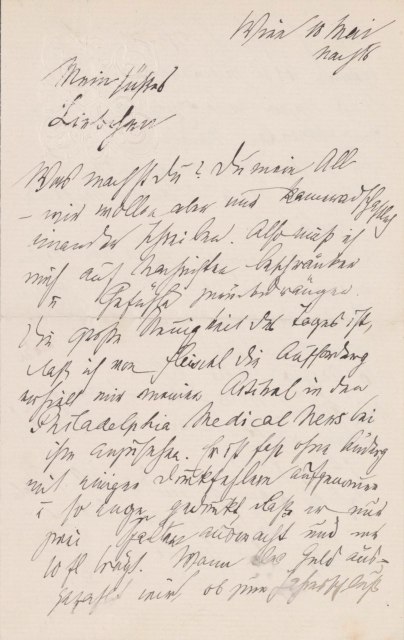 Wien 10 Mai
Nachts
Mein süßes
Liebchen
Was machst Du? Du mein All
– wir wollen aber nur kameradschaftlich
einander schreiben. Also muß ich
mich auf Nachrichten beschränken
u Gefühle zurückdrängen.
Die große Neuigkeit des Tages ist,
daß ich von Fleischl die Aufforderung
erhielt mir meinen Artikel in den
Philadelphia Medical News bei
ihm anzusehen. Er ist fast ohne Änderung
mit einigen Druckfehlern aufgenommen
u so enge gedruckt daß er nur
zwei Spalten ausmacht und nur
10 fl trägt. Wann das Geld aus-
gezahlt wird, ob zum Jahresschluß